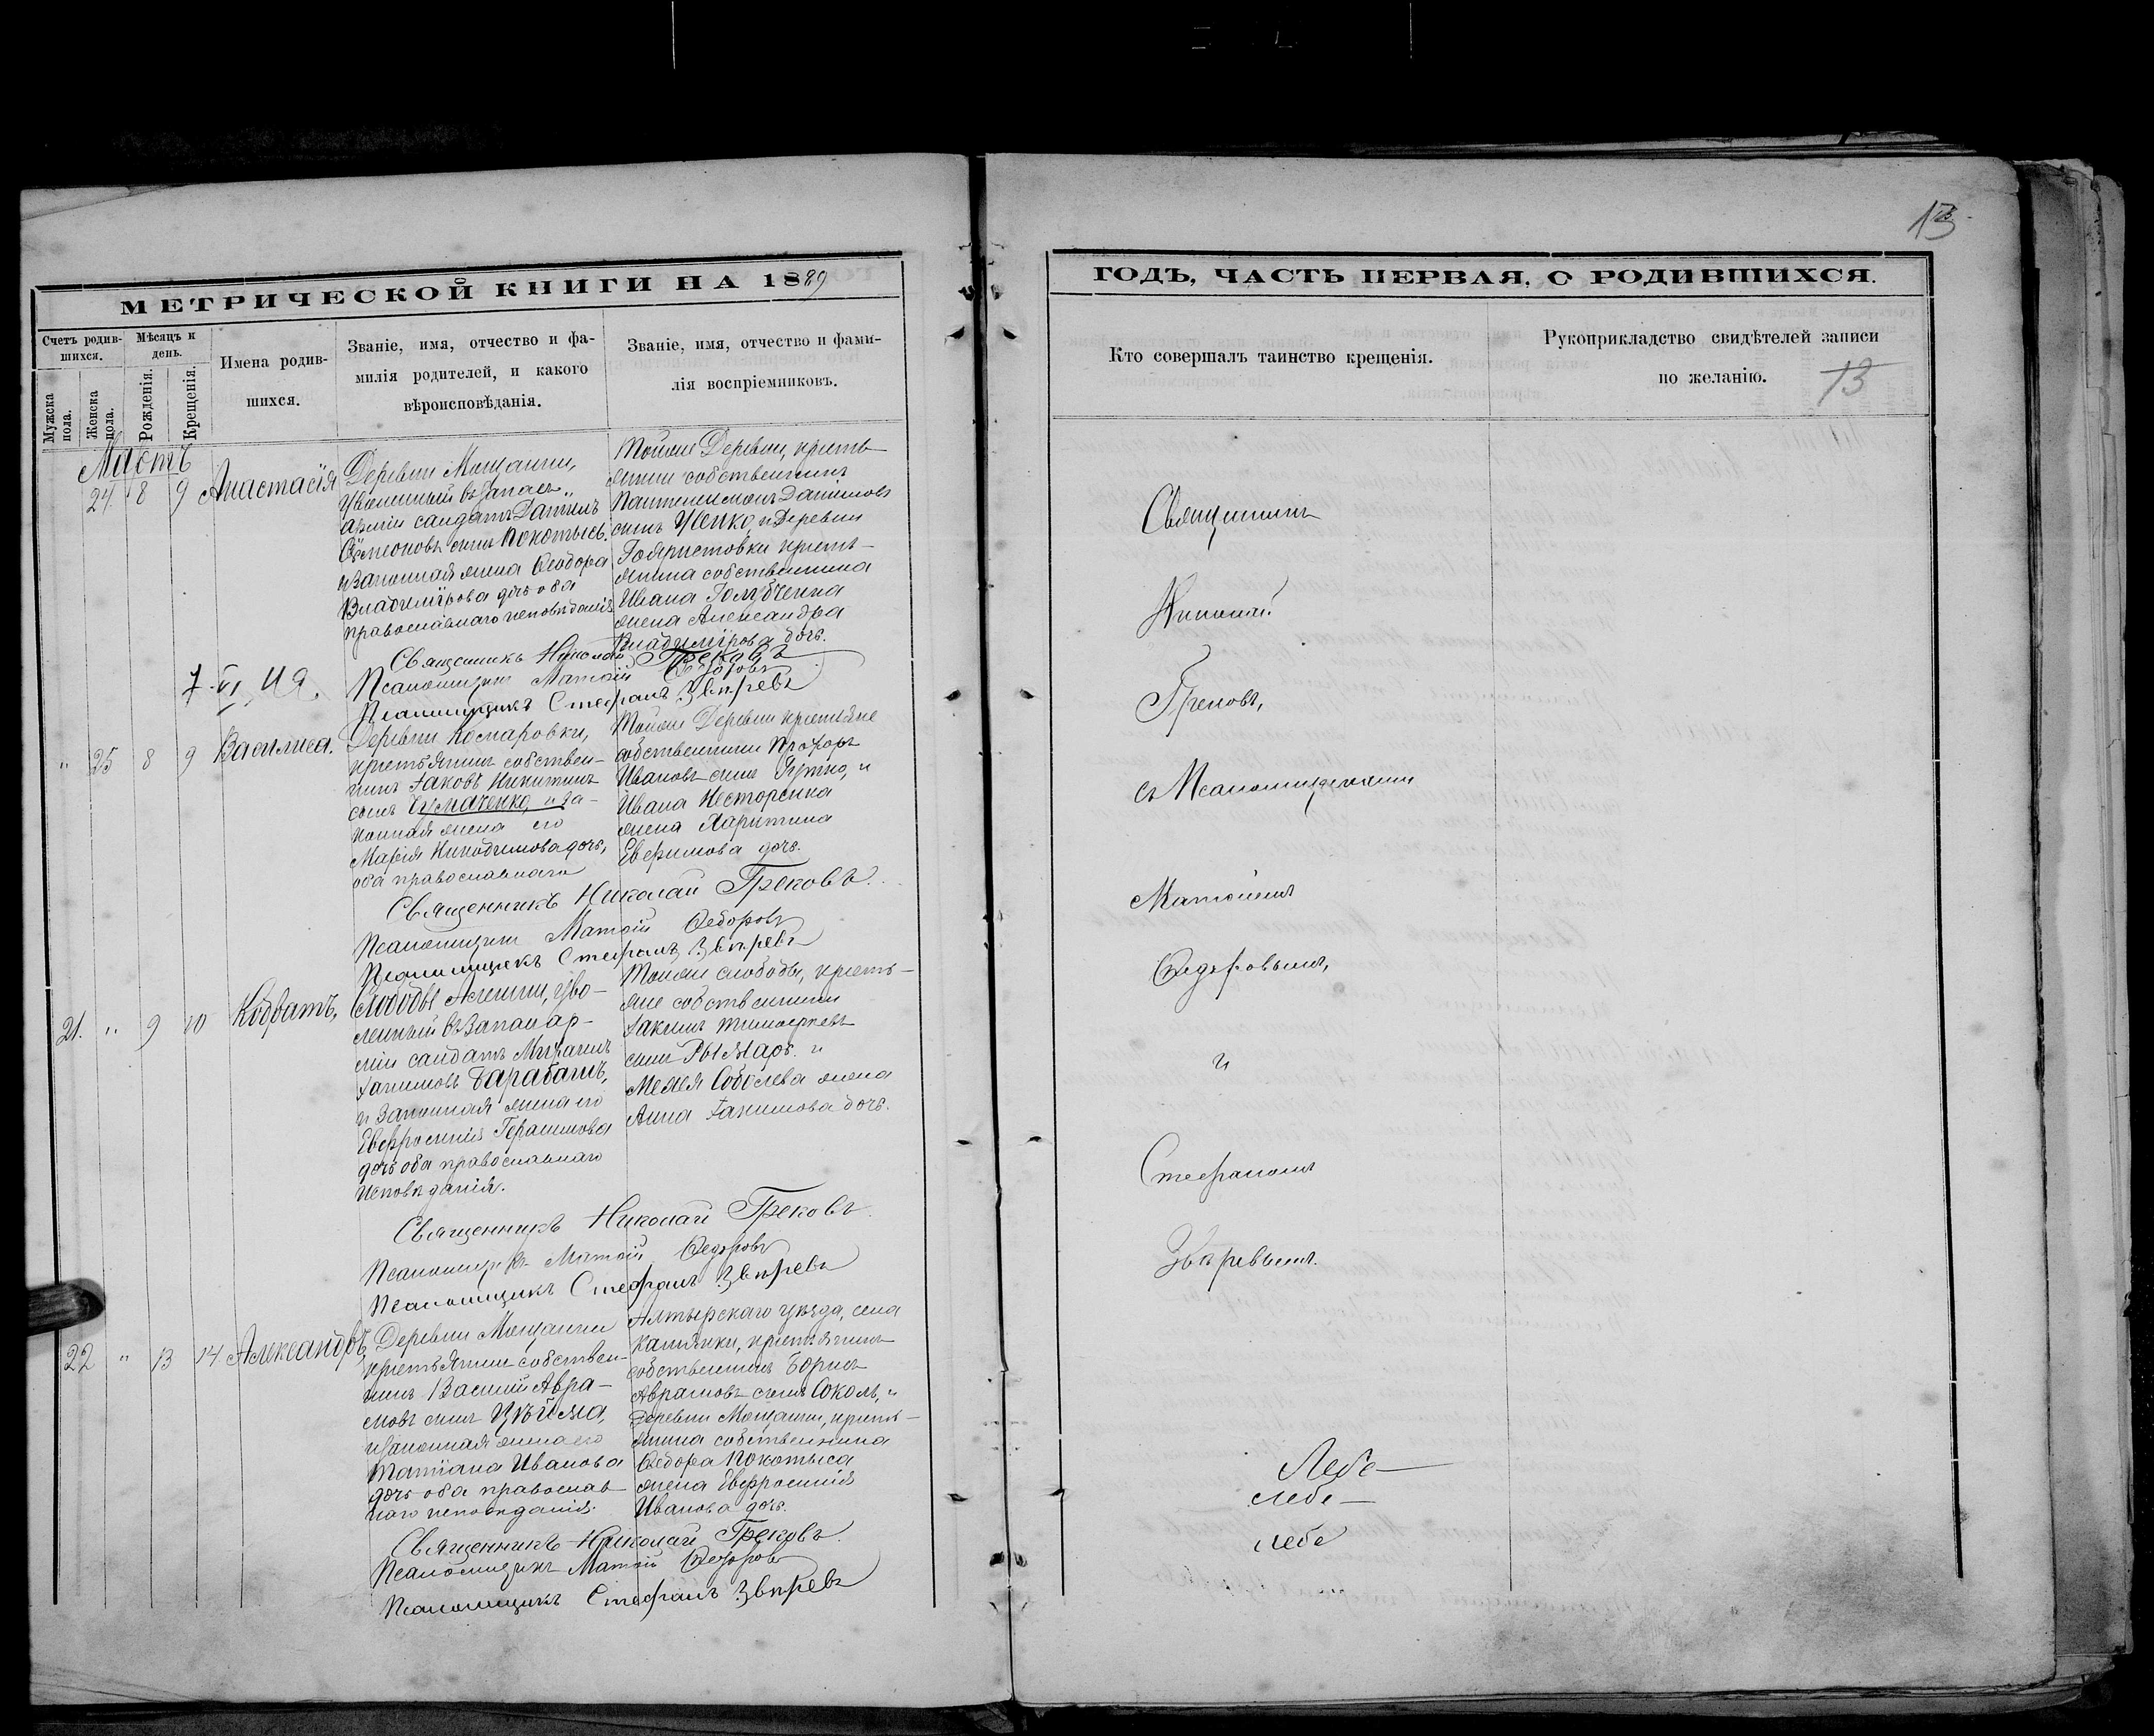 13
МЕТРИЧЕСКОЙ КНИГИ НА 1889
ГОДЪ, ЧАСТЬ ПЕРВАЯ, О РОДИВШИХСЯ.
Счетъ родив-
шихся.
Мѣсяцъ и
день.
Мужска
пола.
Женска
пола.
Рожденія.
Крещенія.
Имена родив-
шихся.
Званіе, имя, отчество и фа-
милія родителей, и какого
вѣроисповѣданія.
Званіе, имя, отчество и фами-
лія воспріемниковъ.
Кто совершалъ таинство крещенія.
Рукоприкладство свидѣтелей записи
по желанію.
13
Мартъ
24 8 9 Анастасія
Деревни Мощанки,
уволенный въ запасъ
арміи солдатъ Даніилъ
Симеоновъ сынъ Покотысь,
и законная жена Феодора
Владимірова дочь оба
православнаго исповѣданія
Тойже Деревни, кресть-
янинъ собственникъ
Пантелеимонъ Даніиловъ
сынъ Усенко, и Деревни
кресть-
янина собственника
Ивана Голубченка
жена Александра
Владимірова дочь.
Священникъ Николай Грековъ
Псаломщикъ Матѳій Ѳедоровъ
Псаломщикъ Стефанъ Звѣревъ
" 25 8 9 Василиса.
Деревни Комаровки,
крестьянинъ собствен-
никъ Іаковъ Никитинъ
сынъ Чумаченко, и за-
конная жена его
Марія Никодимова дочь,
оба православнаго
Тойже Деревни крестьяне
собственники Прохоръ
Ивановъ сынъ и
Ивана Несторенка
жена Харитина
Евфимова дочь.
Священникъ Николай Грековъ.
Псаломщикъ Матѳій Ѳедоровъ
Псаломщикъ Стефанъ Звѣревъ
21. " 9 10 Кодратъ,
Слободы Алешки, уво-
ленный въ запасъ ар-
міи солдатъ
Іакимовъ Барабашъ,
и законная жена его
Евфросинія Герасимова
дочь оба православнаго
исповѣданія.
Тойже слободы, кресть-
яне собственники
Іакимъ Тимоѳеевъ
сынъ Рымарь и
Соболева жена
Анна Іакимова дочь.
Священникъ Николай Грековъ.
Псаломщикъ Матѳій Ѳедоровъ
Псаломщикъ Стефанъ Звѣревъ
22 " 13 14 Александръ,
Деревни Мощанки
крестьянинъ собствен-
никъ Василій Авра-
мовъ сынъ
и законная жена его
Татіана Иванова
дочь оба православ-
наго исповѣданія.
уѣзда, села
Каменки, крестьянинъ
собственникъ Борисъ
Аврамовъ сынъ Соколъ, и
Деревни Мощанки, кресть-
янина собственника
Ѳедора Покотыса
жена Евфросинія
Иванова дочь.
Священникъ Николай Грековъ.
Псаломщикъ Матѳій Ѳедоровъ
Псаломщикъ Стефанъ Звѣревъ
Священникъ
Николай
Грековъ,
съ Псаломщиками
Матѳіемъ
Ѳедоровымъ,
и
Стефаномъ
Звѣревымъ.